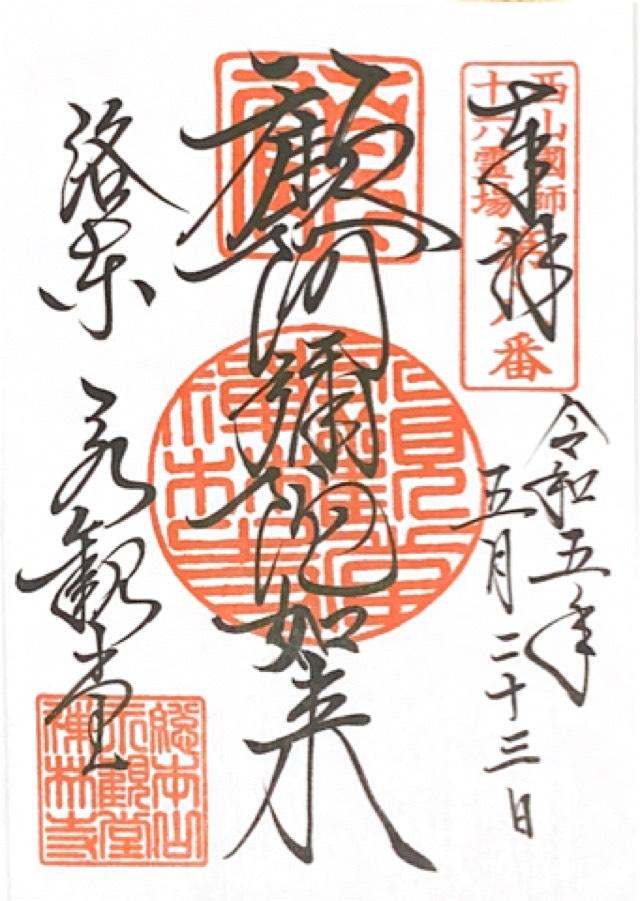 奉拝
西山國師
十六霊場
番
令和五年
五月二十三日
顧阿彌陀如来
洛東 永観堂
総本山
永観堂
禅林寺